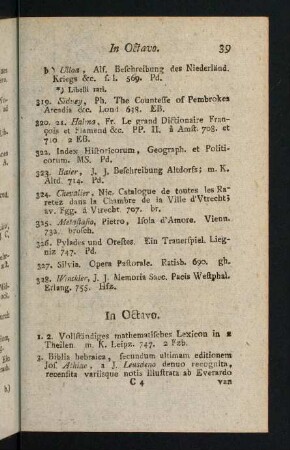 In Octavo. 39
b) Ulloa, Alf. Beschreibung des Niederländ.
Kriegs &c. f. l. 569. Pd.
*) Libelli rari.
319. Sidney, Ph. The Countesse of Pembrokes
Arcadia &c. Lond 638. EB.
320. 21. Halma, Fr. Le grand Dictionaire Fran-
çois et Flamend &c. PP. II. à Amst. 708. et
710 2 EB.
322. Index Historicorum, Geograph. et Politi-
corum. MS. Pd.
323. Baier, J. J. Beschreibung Altdorfs; m. K.
Altd. 714. Pd.
324. Chevalier, Nic. Catalogue de toutes les Ra-
retez dans la Chambre de la Ville d'Vtrecht;
av. Fgg. à Vtrecht. 707. br.
325. Metastasia, Pietro, Isola d'Amore. Vienn.
732. brosch.
326. Pylades und Orestes. Ein Trauerspiel. Lieg-
niz 747. Pd.
327. Silvia. Opera Pastorale. Ratisb. 690. gh.
328. Winckler, J. J. Memoris Saec. Pacis Westphal.
Erlang. 755. Hfz.
In Octavo.
1. 2. Vollständiges mathematisches Lexicon in 2
Theilen m. K. Leipz. 747. 2 Fzb.
3. Biblia hebraica, secundum ultimam editionem
Jos. Athiae, a J. Leusdeno denuo recognita,
recensita variisque notis illustrata ab Everardo
C 4 van